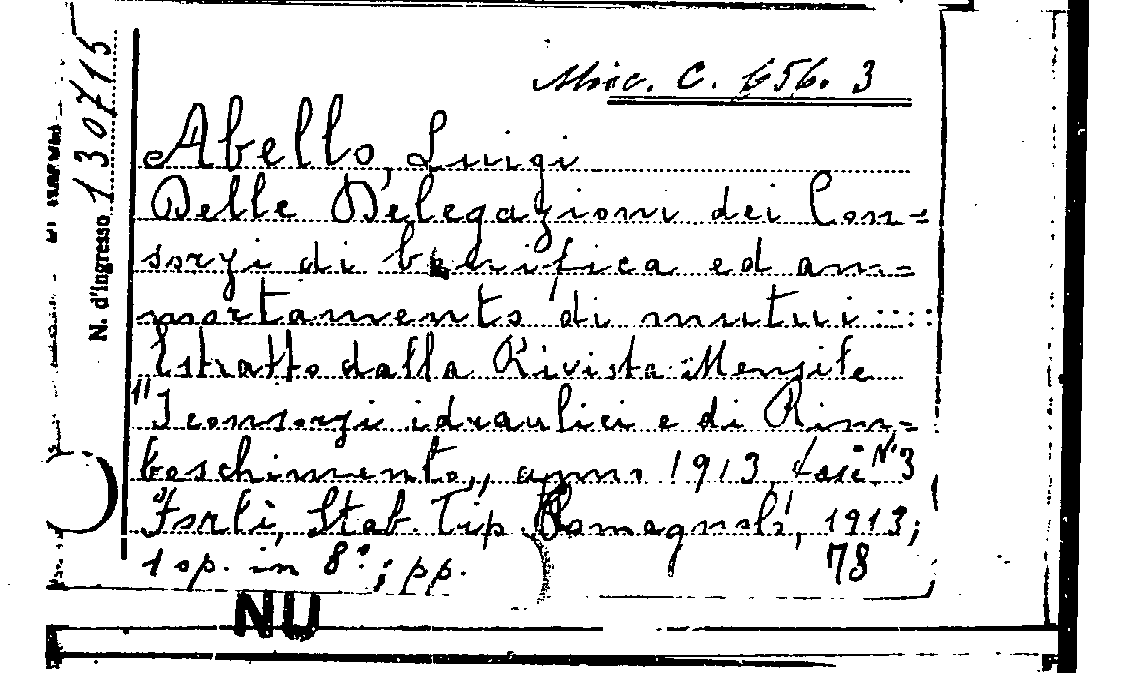 Misc. C. 656. 3
N. d'ingresso 130715
Abello, Luigi
Delle Delegazioni dei Con=
sorzi di bonifica ed am=
mortamento di mutui ....
Estratto dalla Rivista Mensile
"I consorzi idraulici e di Rim=
boschimento,, anno 1913, fasc. N. 3
Forlì, Stab. Tip. Romagnoli, 1913;
1 op. in 8°; pp. 78
NU